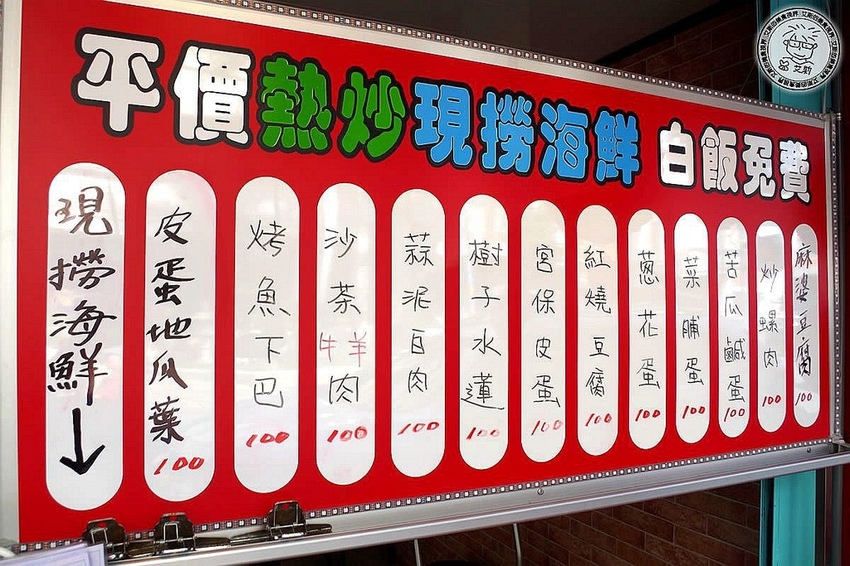 平價熱炒現撈海鮮 白飯免費
現撈海鮮↓
皮蛋地瓜葉 100
烤魚下巴 100
沙茶牛羊肉 100
蒜泥白肉 100
樹子水蓮 100
宮保皮蛋 100
紅燒豆腐 100
蔥花蛋 100
菜脯蛋 100
苦瓜鹹蛋 100
炒螺肉 100
麻婆豆腐 100